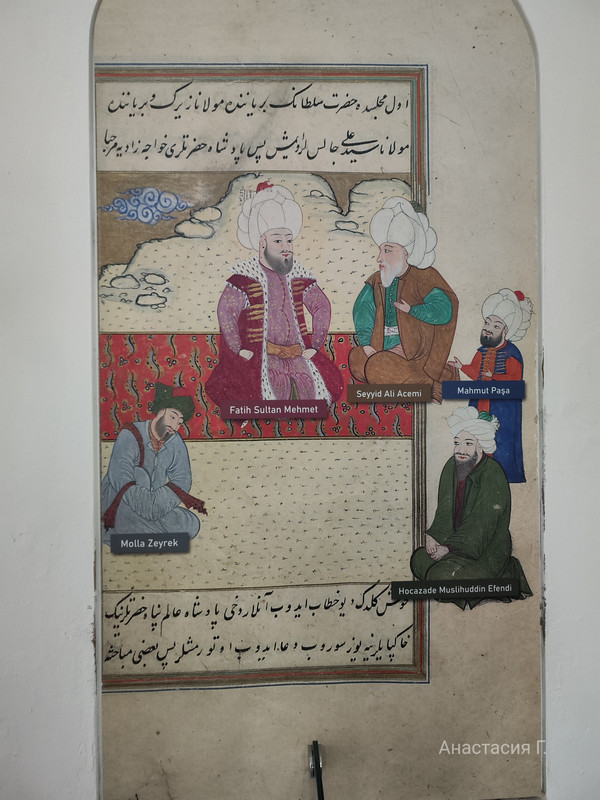 اول مجلسده حضرت سلطانك بر یاننده مولانا زیرك و بر یاننده
مولانا سید علی جالس اولمش پس پادشاه حضرتلری خواجه زاده یه مرحبا
Fatih Sultan Mehmet
Seyyid Ali Acemi
Mahmut Paşa
Molla Zeyrek
Hocazade Muslihuddin Efendi
كلدك دیو خطاب ایدوب آنلار دخی پادشاه عالم پناه حضرتلرینك
خاكپایلرینه یوز سوروب و دعا ایدوب اوتورمشلر پس بعضی مباحثه
Анастасия Г.